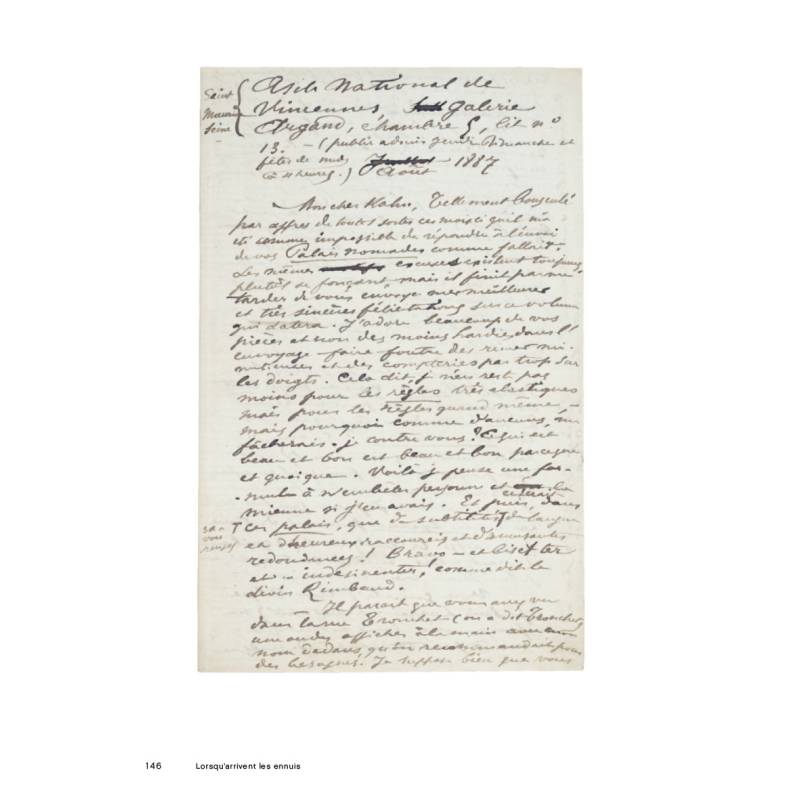 Saint
Maurice
Seine
Asile National de
Vincennes Galerie
Argand, chambre 5, lit no
13. — (public admis jeudi Dimanche et
fêtes de midi Juillet — 1887
à 4 heures.) Août
Mon cher Kahn, Tellement bousculé
par affres de toutes sortes ces mois-ci qu'il m'a
été comme impossible de répondre à l'envoi
de vos Palais nomades comme fallait.
Les mêmes excuses existent toujours
plutôt se fonçant, mais il finit par me
tarder de vous envoyer mes meilleures
et très sincères félicitations sur ce volume
qui datera. J'adore beaucoup de vos
pièces et non des moins hardies dans l'
envoyage — faire — foutre des rimes mi-
nutieuses et des compteries par trop sur
les doigts. Cela dit, j'en reste pas
moins pour les règles très élastiques
mais pour les règles quand même, —
mais pourquoi comme d'aucuns, me
fâcherais-je contre vous? Ce qui est
beau et bon est beau et bon parce que
et quoique. Voilà je pense une for-
mule à n'embêter personne et la
mienne si j'en avais. Et puis, dans
ces palais, que de subtilités de langue
et d'heureux raccourcis et d'amusantes
redondances! Bravo — et bis et ter
et — indesinenter! comme dit le
divin Rimbaud.
Il parait que vous avez vu
dans la rue Tronchet (on a dit Tronchet)
une ou des affiches à la main avec mon
nom dedans, qu'on recommandait pour
des besognes. Je suppose bien que vous
146 Lorsqu'arrivent les ennuis